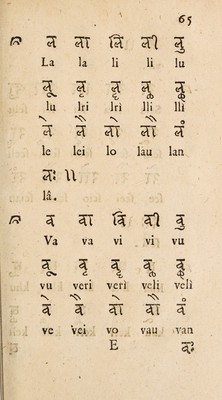 65
ल ला लि ली लु
La la li li lu
लू लृ लॄ लॢ लॣ
lu lri lri lli lli
ले लै लो लौ लं
le lei lo lau lan
लः ॥
lâ.
व वा वि वी वु
Va va vi vi vu
वू वृ वॄ वॢ वॣ
vu veri veri veli veli
वे वै वो वौ वं
ve vei vo vau van
E वः